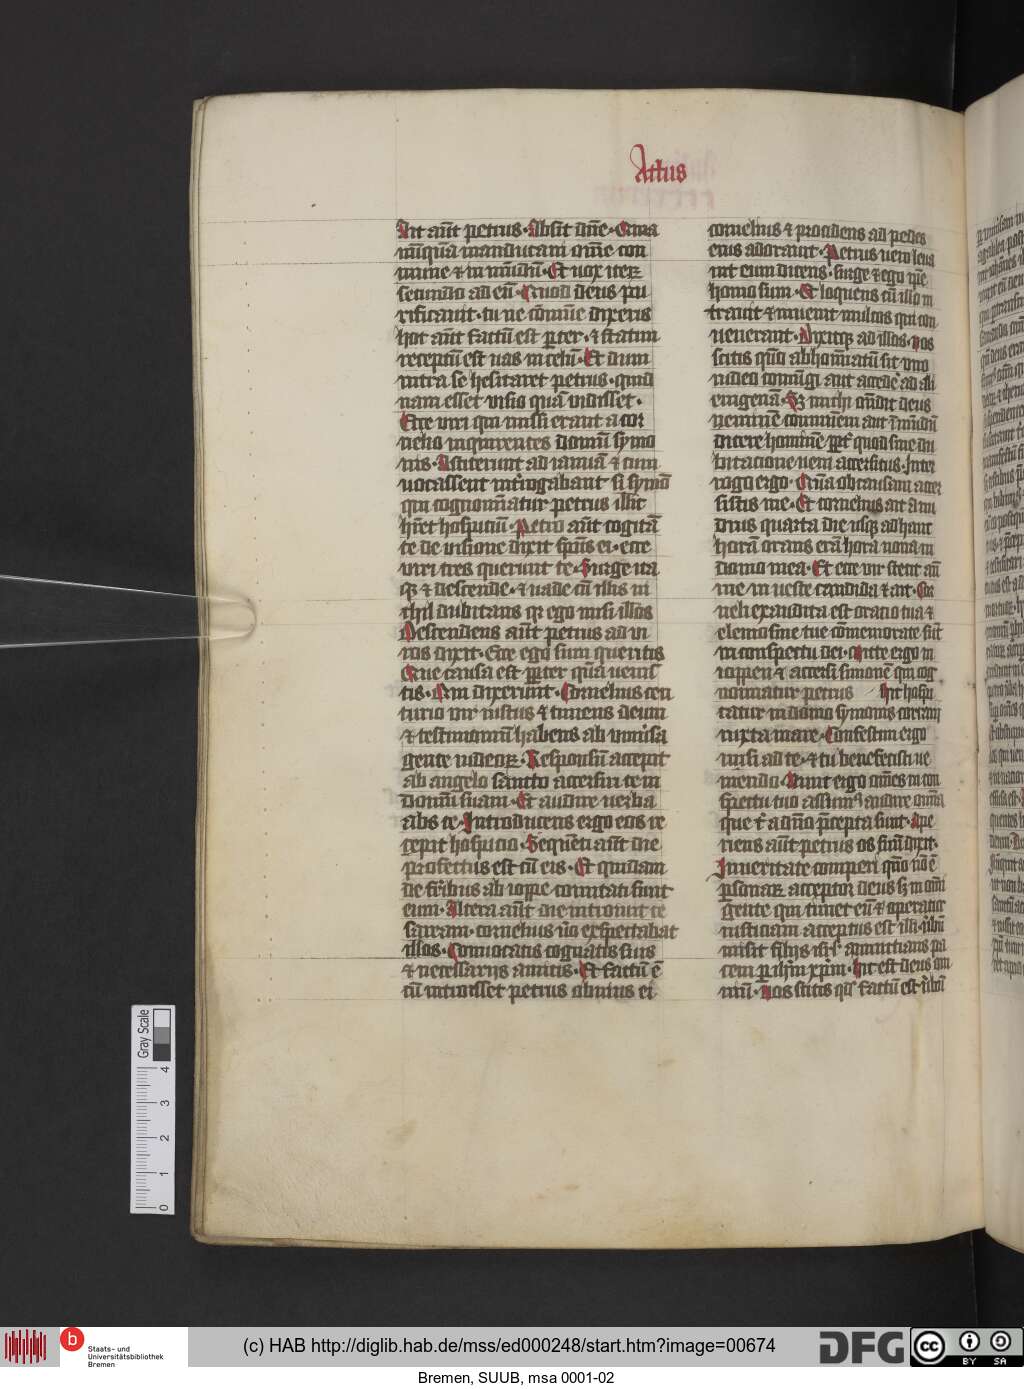 Actus
Ait aut̄ petrus. Absit dn̄e. Quia
nūquā manducaui om̄e com
mune ⁊ in mūdū. Et uox iteꝝ
secundo ad eū. Quod deus pu
rificauit. tu ne cōmūe dixeris
hoc aut̄ factū est per ter. ⁊ statim
receptū est uas in celū. Et dum
intra se hesitaret petrus. quid
nam esset uisio quā uidisset.
Ecce uiri qui missi erant a cor
nelio inquirentes domū symo
nis. Astiterunt ad ianuā ⁊ cum
uocassent int̄rogabant si symō
qui cognom̄atur petrus illic
hr̄et hospiciū. Petro aut̄ cogitā
te de uisione dixit sp̄us ei. ecce
uiri tres querunt te. Surge ita
qꝫ ⁊ descende. ⁊ uade cū illis ni
chil dubitans qꝛ ego misi illos
Descendens aut̄ petrus ad ui
ros dixit. Ecce ego sum queritis
Que causa est ꝓpter quā uenis
tis. Qui dixerunt. Cornelius cen
turio uir iustus ⁊ timens deum
⁊ testimoniū habens ab uniūsa
gente iudeoꝝ. Responsū accepit
ab angelo sancto accersiri te in
domū suam. Et audire uerba
abs te. Introducens ergo eos re
cepit hospicio. Sequēti aut̄ die
profectus est cū eis. Et quidam
de fr̄ibus ab ioppe comitati sunt
eum. Altera aut̄ die introiuit ce
saream. cornelius ūo exspectabat
illos. Conuocatis cognatis suis
⁊ necessarijs amicis. Et factū ē
cū introisset petrus obuius ei
cornelius ⁊ procidens ad pedes
eius adorauit. Petrus uero leua
uit eum dicens. surge ⁊ ego ip̄e
homo sum. Et loquens cū illo in
trauit ⁊ inuenit multos qui con
uenerant. Dixitqꝫ ad illos. uos
scitis quō abhoīatū sit uiro
iudeo coniūgi aut accedē ad ali
enigenā. Sꝫ michi oñdit deus
neminē communem aut īmūdū
dicere hominē ꝓpt̄ quod sine du
bitacione ueni accersitus. Inter
rogo ergo. Quā ob causam accer
sistis me. Et cornelius ait a nu
dius quarta die usqꝫ ad hanc
horā orans erā hora nona in
domo mea. Et ecce uir stetit an̄
me in ueste candida ⁊ ait. Cor
neli exaudita est oracio tua ⁊
elemosine tue cōmemorate sūt
in conspectu dei. Mitte ergo in
ioppen ⁊ accersi simonē qui cog
nominatur petrus Hic hospi
tatur in domo symonis coriarij
iuxta mare. Confestim ergo
misi ad te. ⁊ tu benefecisti ue
niendo. Nunc ergo om̄es in con
spectu tuo assumꝰ audire om̄ia
que t̄ a dn̄o p̄cepta sunt. Ape
riens aut̄ petrus os suū dixit.
In ueritate comperi quō nō ē
ꝑsonaꝝ acceptor deus sꝫ in om̄i
gente qui timet eū ⁊ operatur
iusticiam acceptus est illi. ūbū
misit filijs isrl̄ annuncians pa
cem ꝑ ih̄m xp̄m. Hic est deus om
niū. Uos scitis qđ factū est ūbū
Gray Scale
0 1 2 3 4
b Staats- und
Universitätsbibliothek
Bremen
(c) HAB http://diglib.hab.de/mss/ed000248/start.htm?image=00674
DFG
cc BY SA
Bremen, SUUB, msa 0001-02